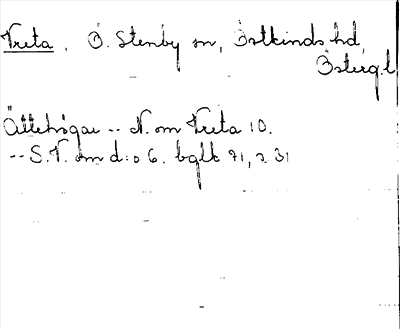 Vreta. Ö. Stenby sn, Östkinds hd,
Österg.l.
Ättehögar -- N. om Vreta 10.
-- S.V. om d:o 6. bglk 71, 2 31